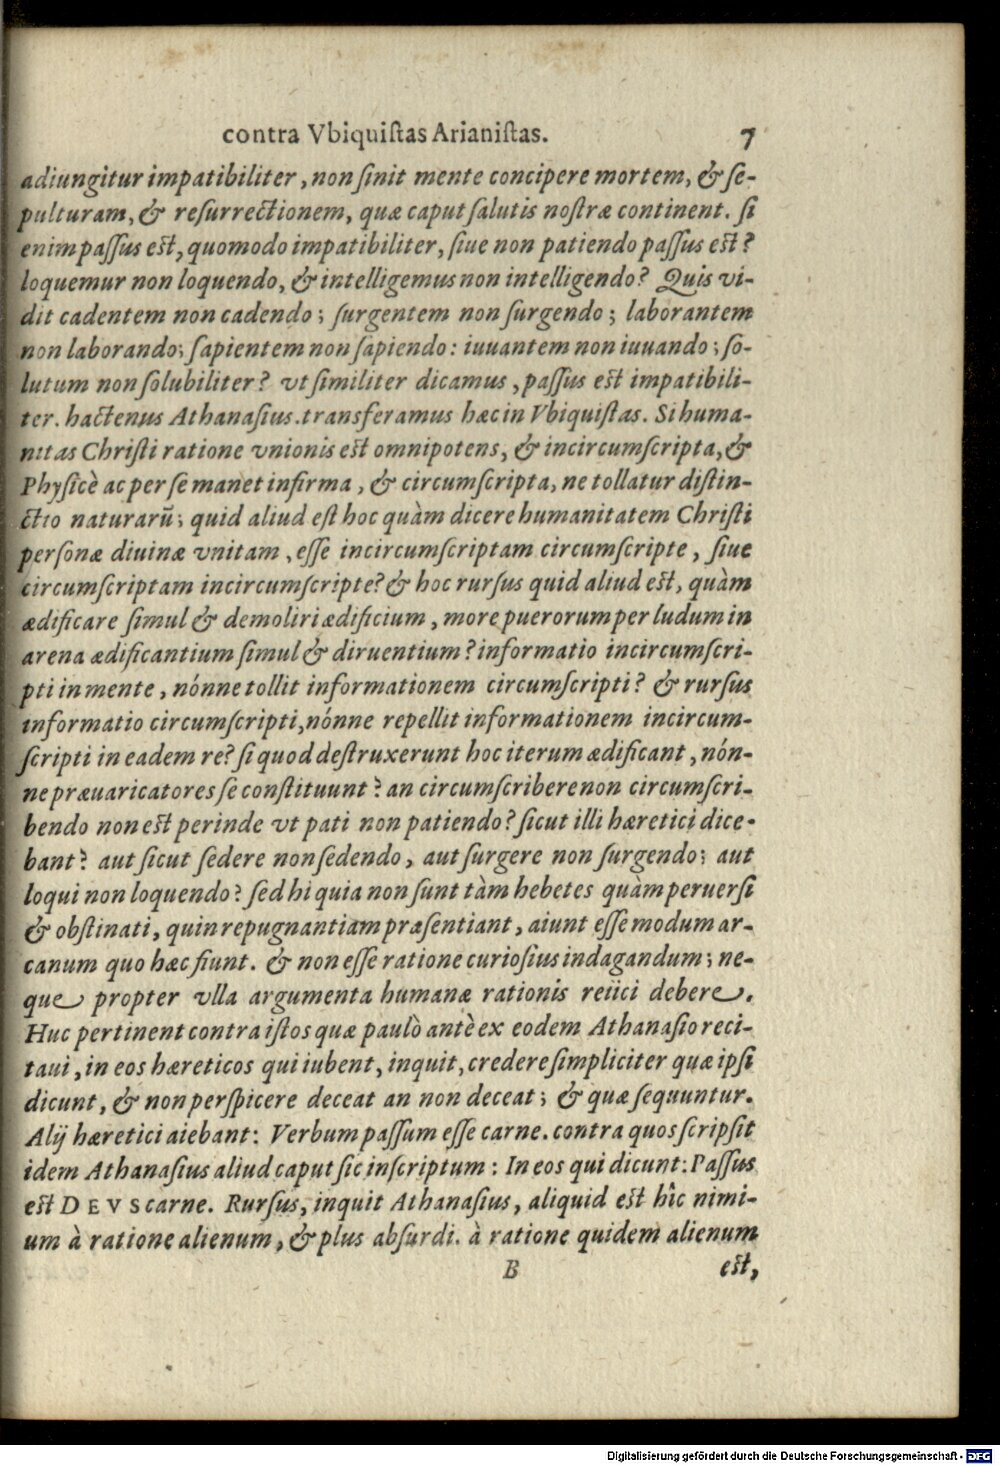 contra Vbiquiſtas Arianiſtas. 7
adiungitur impatibiliter, non ſinit mente concipere mortem, & ſe-
pulturam, & reſurrectionem, quæ caput ſalutis noſtræ continent. ſi
enim paſſus eſt, quomodo impatibiliter, ſiue non patiendo paſſus eſt?
loquemur non loquendo, & intelligemus non intelligendo? Quis vi-
dit cadentem non cadendo; ſurgentem non ſurgendo; laborantem
non laborando; ſapientem non ſapiendo: iuuantem non iuuando; ſo-
lutum non ſolubiliter? vt ſimiliter dicamus, paſſus eſt impatibili-
ter. hactenus Athanaſius. transferamus hæc in Vbiquiſtas. Si huma-
nitas Chriſti ratione vnionis eſt omnipotens, & incircumſcripta, &
Phyſicè ac per ſe manet infirma, & circumſcripta, ne tollatur diſtin-
ctio naturarũ; quid aliud eſt hoc quàm dicere humanitatem Chriſti
perſonæ diuinæ vnitam, eſſe incircumſcriptam circumſcripte, ſiue
circumſcriptam incircumſcripte? & hoc rurſus quid aliud eſt, quàm
ædificare ſimul & demoliri ædificium, more puerorum per ludum in
arena ædificantium ſimul & diruentium? informatio incircumſcri-
pti in mente, nónne tollit informationem circumſcripti? & rurſus
informatio circumſcripti, nónne repellit informationem incircum-
ſcripti in eadem re? ſi quod deſtruxerunt hoc iterum ædificant, nón-
ne præuaricatores ſe conſtituunt? an circumſcribere non circumſcri-
bendo non eſt perinde vt pati non patiendo? ſicut illi hæretici dice-
bant? aut ſicut ſedere non ſedendo, aut ſurgere non ſurgendo; aut
loqui non loquendo? ſed hi quia non ſunt tàm hebetes quàm peruerſi
& obſtinati, quin repugnantiam præſentiant, aiunt eſſe modum ar-
canum quo hæc fiunt. & non eſſe ratione curioſius indagandum; ne-
que propter vlla argumenta humanæ rationis reiici debere.
Huc pertinent contra iſtos quæ paulò antè ex eodem Athanaſio reci-
taui, in eos hæreticos qui iubent, inquit, credere ſimpliciter quæ ipſi
dicunt, & non perſpicere deceat an non deceat; & quæ ſequuntur.
Alij hæretici aiebant: Verbum paſſum eſſe carne. contra quos ſcripſit
idem Athanaſius aliud caput ſic inſcriptum: In eos qui dicunt: Paſſus
eſt DEVS carne. Rurſus, inquit Athanaſius, aliquid eſt hîc nimi-
um à ratione alienum, & plus abſurdi. à ratione quidem alienum
B eſt,
Digitalisierung gefördert durch die Deutsche Forschungsgemeinschaft - DFG